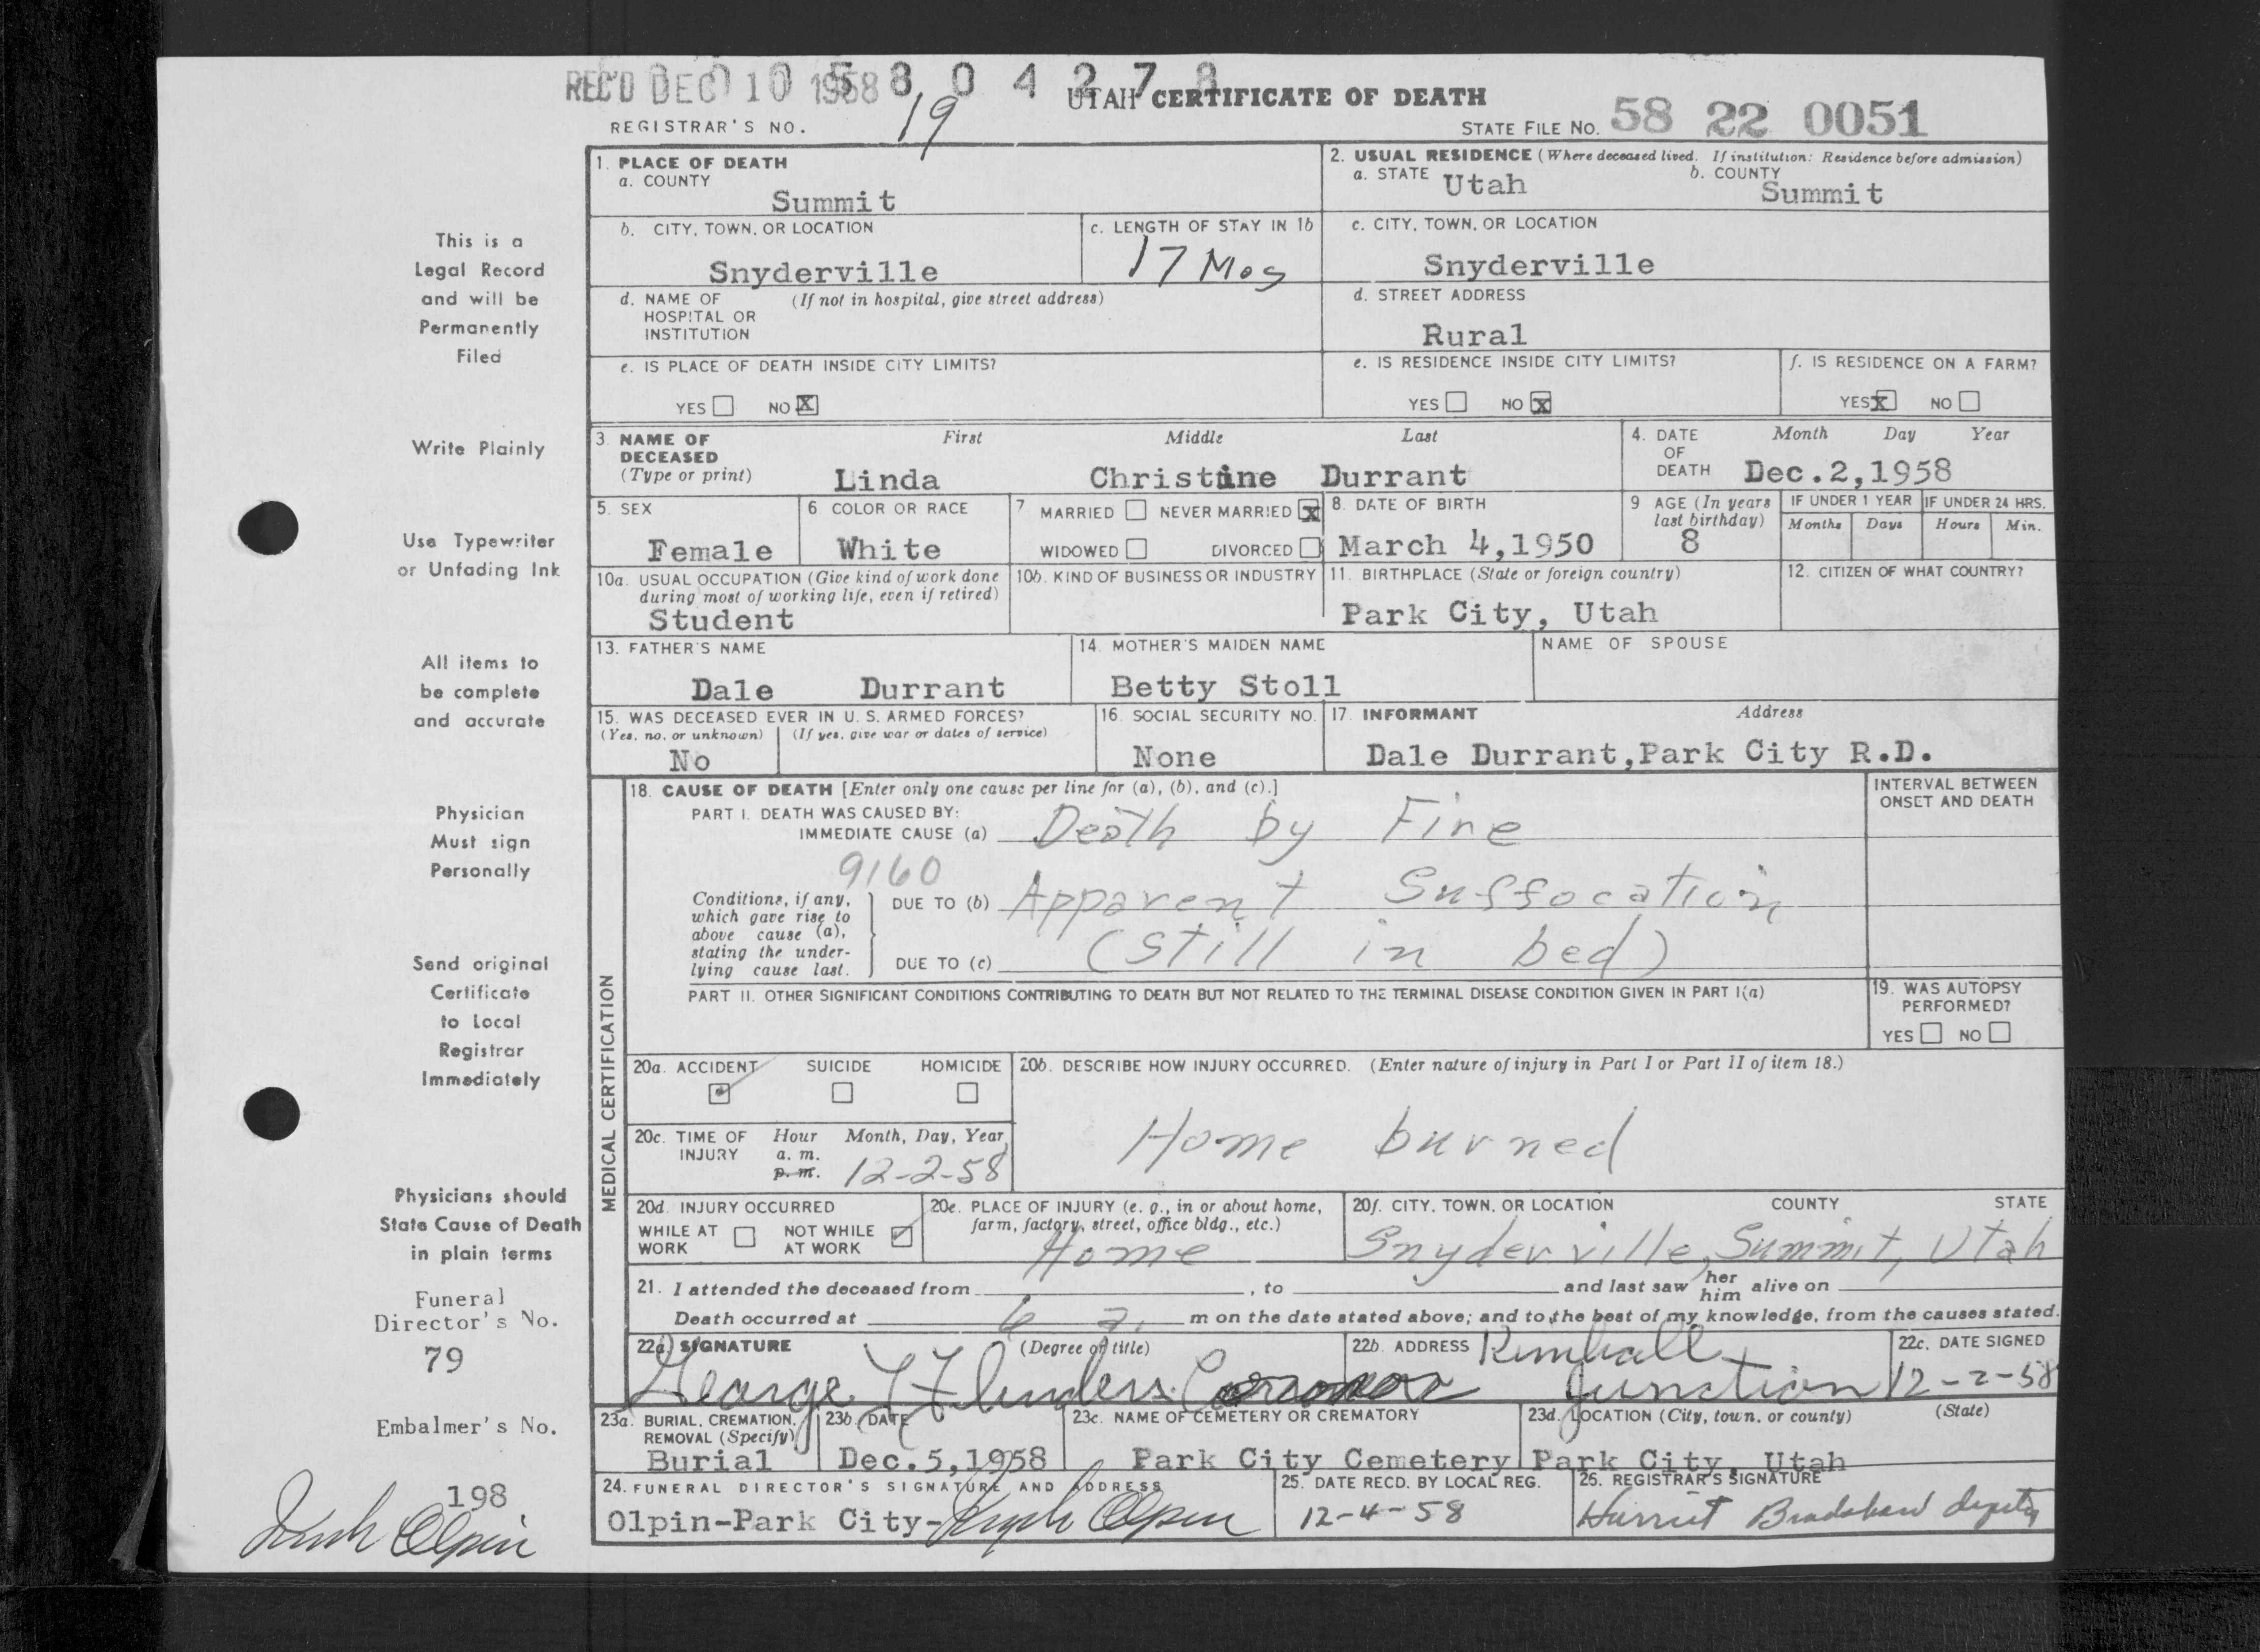 REC'D DEC 10 1958
UTAH CERTIFICATE OF DEATH
REGISTRAR'S NO. 19
STATE FILE NO. 58 22 0051
1. PLACE OF DEATH
a. COUNTY
Summit
2. USUAL RESIDENCE (Where deceased lived. If institution: Residence before admission)
a. STATE Utah b. COUNTY Summit
b. CITY, TOWN, OR LOCATION
Snyderville
c. LENGTH OF STAY IN 1b
17 Mos
c. CITY, TOWN, OR LOCATION
Snyderville
d. NAME OF (If not in hospital, give street address)
HOSPITAL OR
INSTITUTION
d. STREET ADDRESS
Rural
e. IS PLACE OF DEATH INSIDE CITY LIMITS?
YES NO X
e. IS RESIDENCE INSIDE CITY LIMITS?
YES NO X
f. IS RESIDENCE ON A FARM?
YES X NO
3. NAME OF DECEASED
(Type or print)
First Middle Last
Linda Christine Durrant
4. DATE OF DEATH
Month Day Year
Dec.2,1958
5. SEX
Female
6 COLOR OR RACE
White
7 MARRIED NEVER MARRIED X
WIDOWED DIVORCED
8. DATE OF BIRTH
March 4,1950
9 AGE (In years
last birthday)
8
IF UNDER 1 YEAR IF UNDER 24 HRS.
Months Days Hours Min.
10a. USUAL OCCUPATION (Give kind of work done
during most of working life, even if retired)
Student
10b. KIND OF BUSINESS OR INDUSTRY
11. BIRTHPLACE (State or foreign country)
Park City, Utah
12. CITIZEN OF WHAT COUNTRY?
13. FATHER'S NAME
Dale Durrant
14. MOTHER'S MAIDEN NAME
Betty Stoll
NAME OF SPOUSE
15. WAS DECEASED EVER IN U. S. ARMED FORCES?
(Yes, no, or unknown) (If yes, give war or dates of service)
No
16. SOCIAL SECURITY NO.
None
17. INFORMANT Address
Dale Durrant,Park City R.D.
MEDICAL CERTIFICATION
18. CAUSE OF DEATH [Enter only one cause per line for (a), (b), and (c).]
INTERVAL BETWEEN
ONSET AND DEATH
PART I. DEATH WAS CAUSED BY:
IMMEDIATE CAUSE (a) Death by Fire
9160
Conditions, if any,
which gave rise to
above cause (a),
stating the under-
lying cause last.
DUE TO (b) Apparent Suffocation
DUE TO (c) (Still in bed)
PART II. OTHER SIGNIFICANT CONDITIONS CONTRIBUTING TO DEATH BUT NOT RELATED TO THE TERMINAL DISEASE CONDITION GIVEN IN PART I(a)
19. WAS AUTOPSY
PERFORMED?
YES NO
20a. ACCIDENT SUICIDE HOMICIDE
20b. DESCRIBE HOW INJURY OCCURRED. (Enter nature of injury in Part I or Part II of item 18.)
Home burned
20c. TIME OF INJURY
Hour Month, Day, Year
a. m.
p. m. 12-2-58
20d. INJURY OCCURRED
WHILE AT WORK NOT WHILE AT WORK
20e. PLACE OF INJURY (e. g., in or about home,
farm, factory, street, office bldg., etc.)
Home
20f. CITY, TOWN, OR LOCATION COUNTY STATE
Snyderville, Summit, Utah
21. I attended the deceased from , to and last saw her him alive on
Death occurred at 6 a. m on the date stated above; and to the best of my knowledge, from the causes stated.
22a. SIGNATURE (Degree or title)
George Y Flinders
22b. ADDRESS Kimball
Junction
22c. DATE SIGNED
12-2-58
23a. BURIAL, CREMATION,
REMOVAL (Specify)
Burial
23b. DATE
Dec.5,1958
23c. NAME OF CEMETERY OR CREMATORY
Park City Cemetery
23d. LOCATION (City, town, or county) (State)
Park City, Utah
24. FUNERAL DIRECTOR'S SIGNATURE AND ADDRESS
Olpin-Park City- Hugh Olpin
25. DATE RECD. BY LOCAL REG.
12-4-58
26. REGISTRAR'S SIGNATURE
Harriet Bradshaw deputy
This is a
Legal Record
and will be
Permanently
Filed
Write Plainly
Use Typewriter
or Unfading Ink
All items to
be complete
and accurate
Physician
Must sign
Personally
Send original
Certificate
to Local
Registrar
Immediately
Physicians should
State Cause of Death
in plain terms
Funeral
Director's No.
79
Embalmer's No.
198
Hugh Olpin